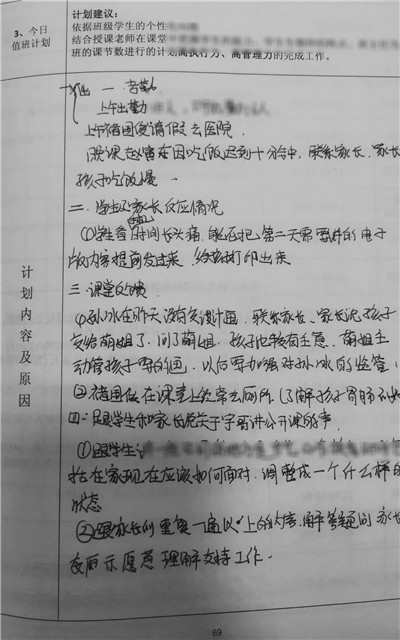 3、今日
值班计划
计划建议：
依据班级学生的个性
结合授课老师在课堂
班的课节数进行的计划高执行力、高管理力的完成工作。
计划内容及原因
一 考勤
上午出勤
上午 请假去医院
晚课 因吃饭迟到十分钟，联系家长，家长
孩子吃饭慢
二、学生及家长反应情况
①学生 时间长头痛，能否把第二天需要讲的电子
版内容提前发过来，给孩子打印出来
三、课堂
① 在昨天没有交计画，联系家长，家长说孩子
交给萌姐了，问了萌姐，孩子也较有主意，萌姐主
动管孩子要的画，以后要加强对 的监管，
② 在课堂上经常去厕所，了解孩子胃肠不好
四：跟学生和家长说关于 讲公开课的事
①跟学生
括在家现在应该如何面对，调整成一个什么样的
状态
②跟家长们重复一遍以上的内容，解答疑问，家长
表示愿意理解支持工作。
69